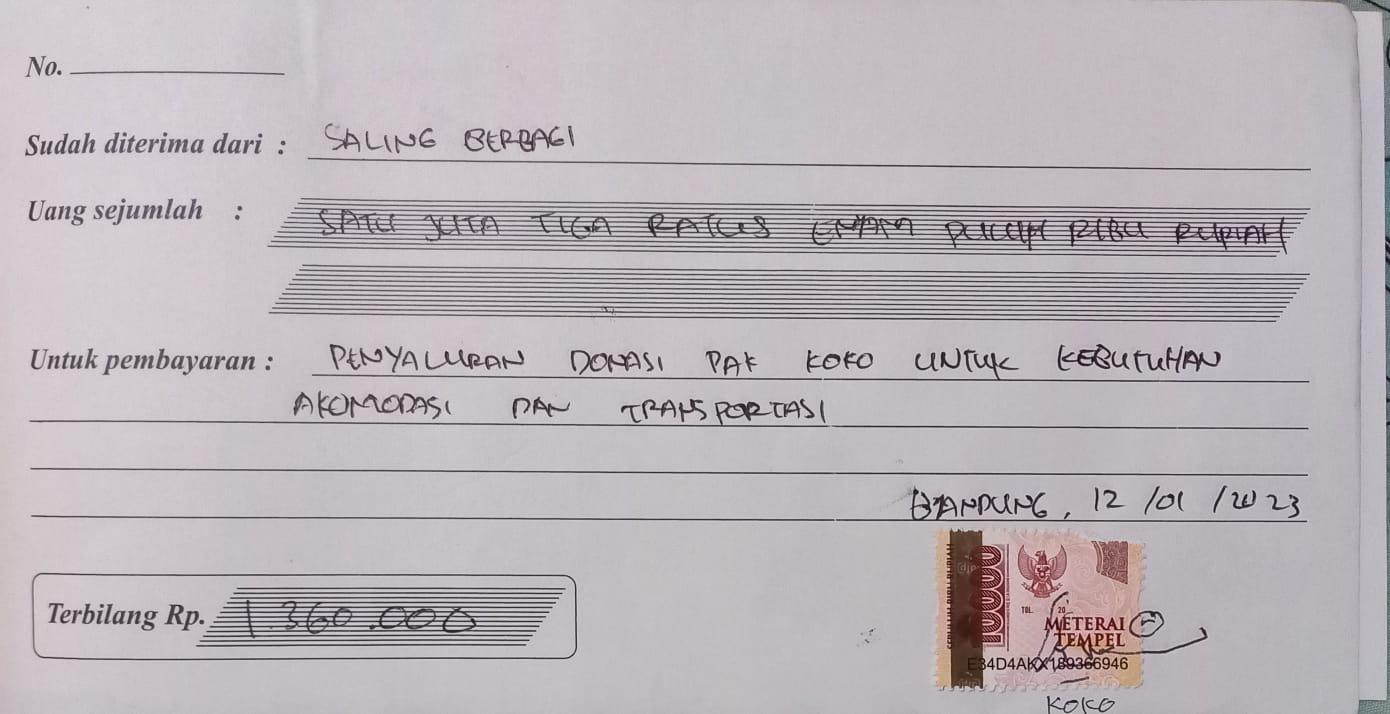 No.
Sudah diterima dari : SALING BERBAGI
Uang sejumlah : SATU JUTA TIGA RATUS ENAM PULUH RIBU RUPIAH
Untuk pembayaran : PENYALURAN DONASI PAK KOKO UNTUK KEBUTUHAN
AKOMODASI DAN TRANSPORTASI
BANDUNG, 12 /01 /2023
Terbilang Rp. 1.360.000
10000
djp
TGL. 20
METERAI
TEMPEL
E34D4AKX189366946
KOKO